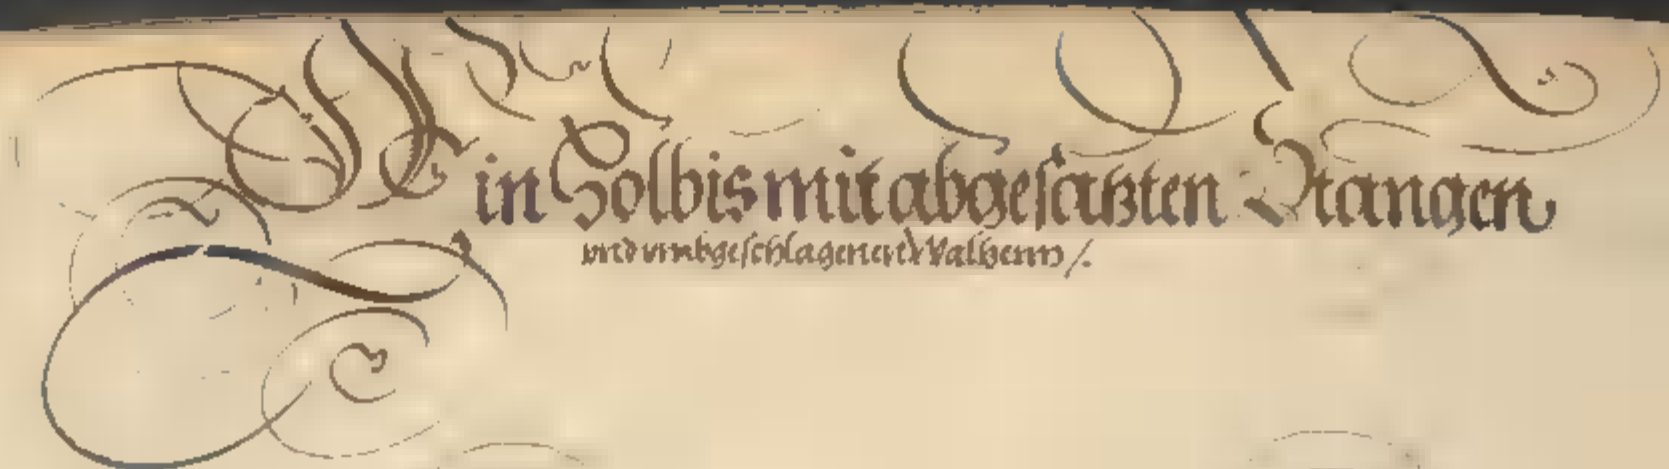 Ein Holbis mit abgesatzten Stangen
vnd vmbgeschlagenen Walhenn /.